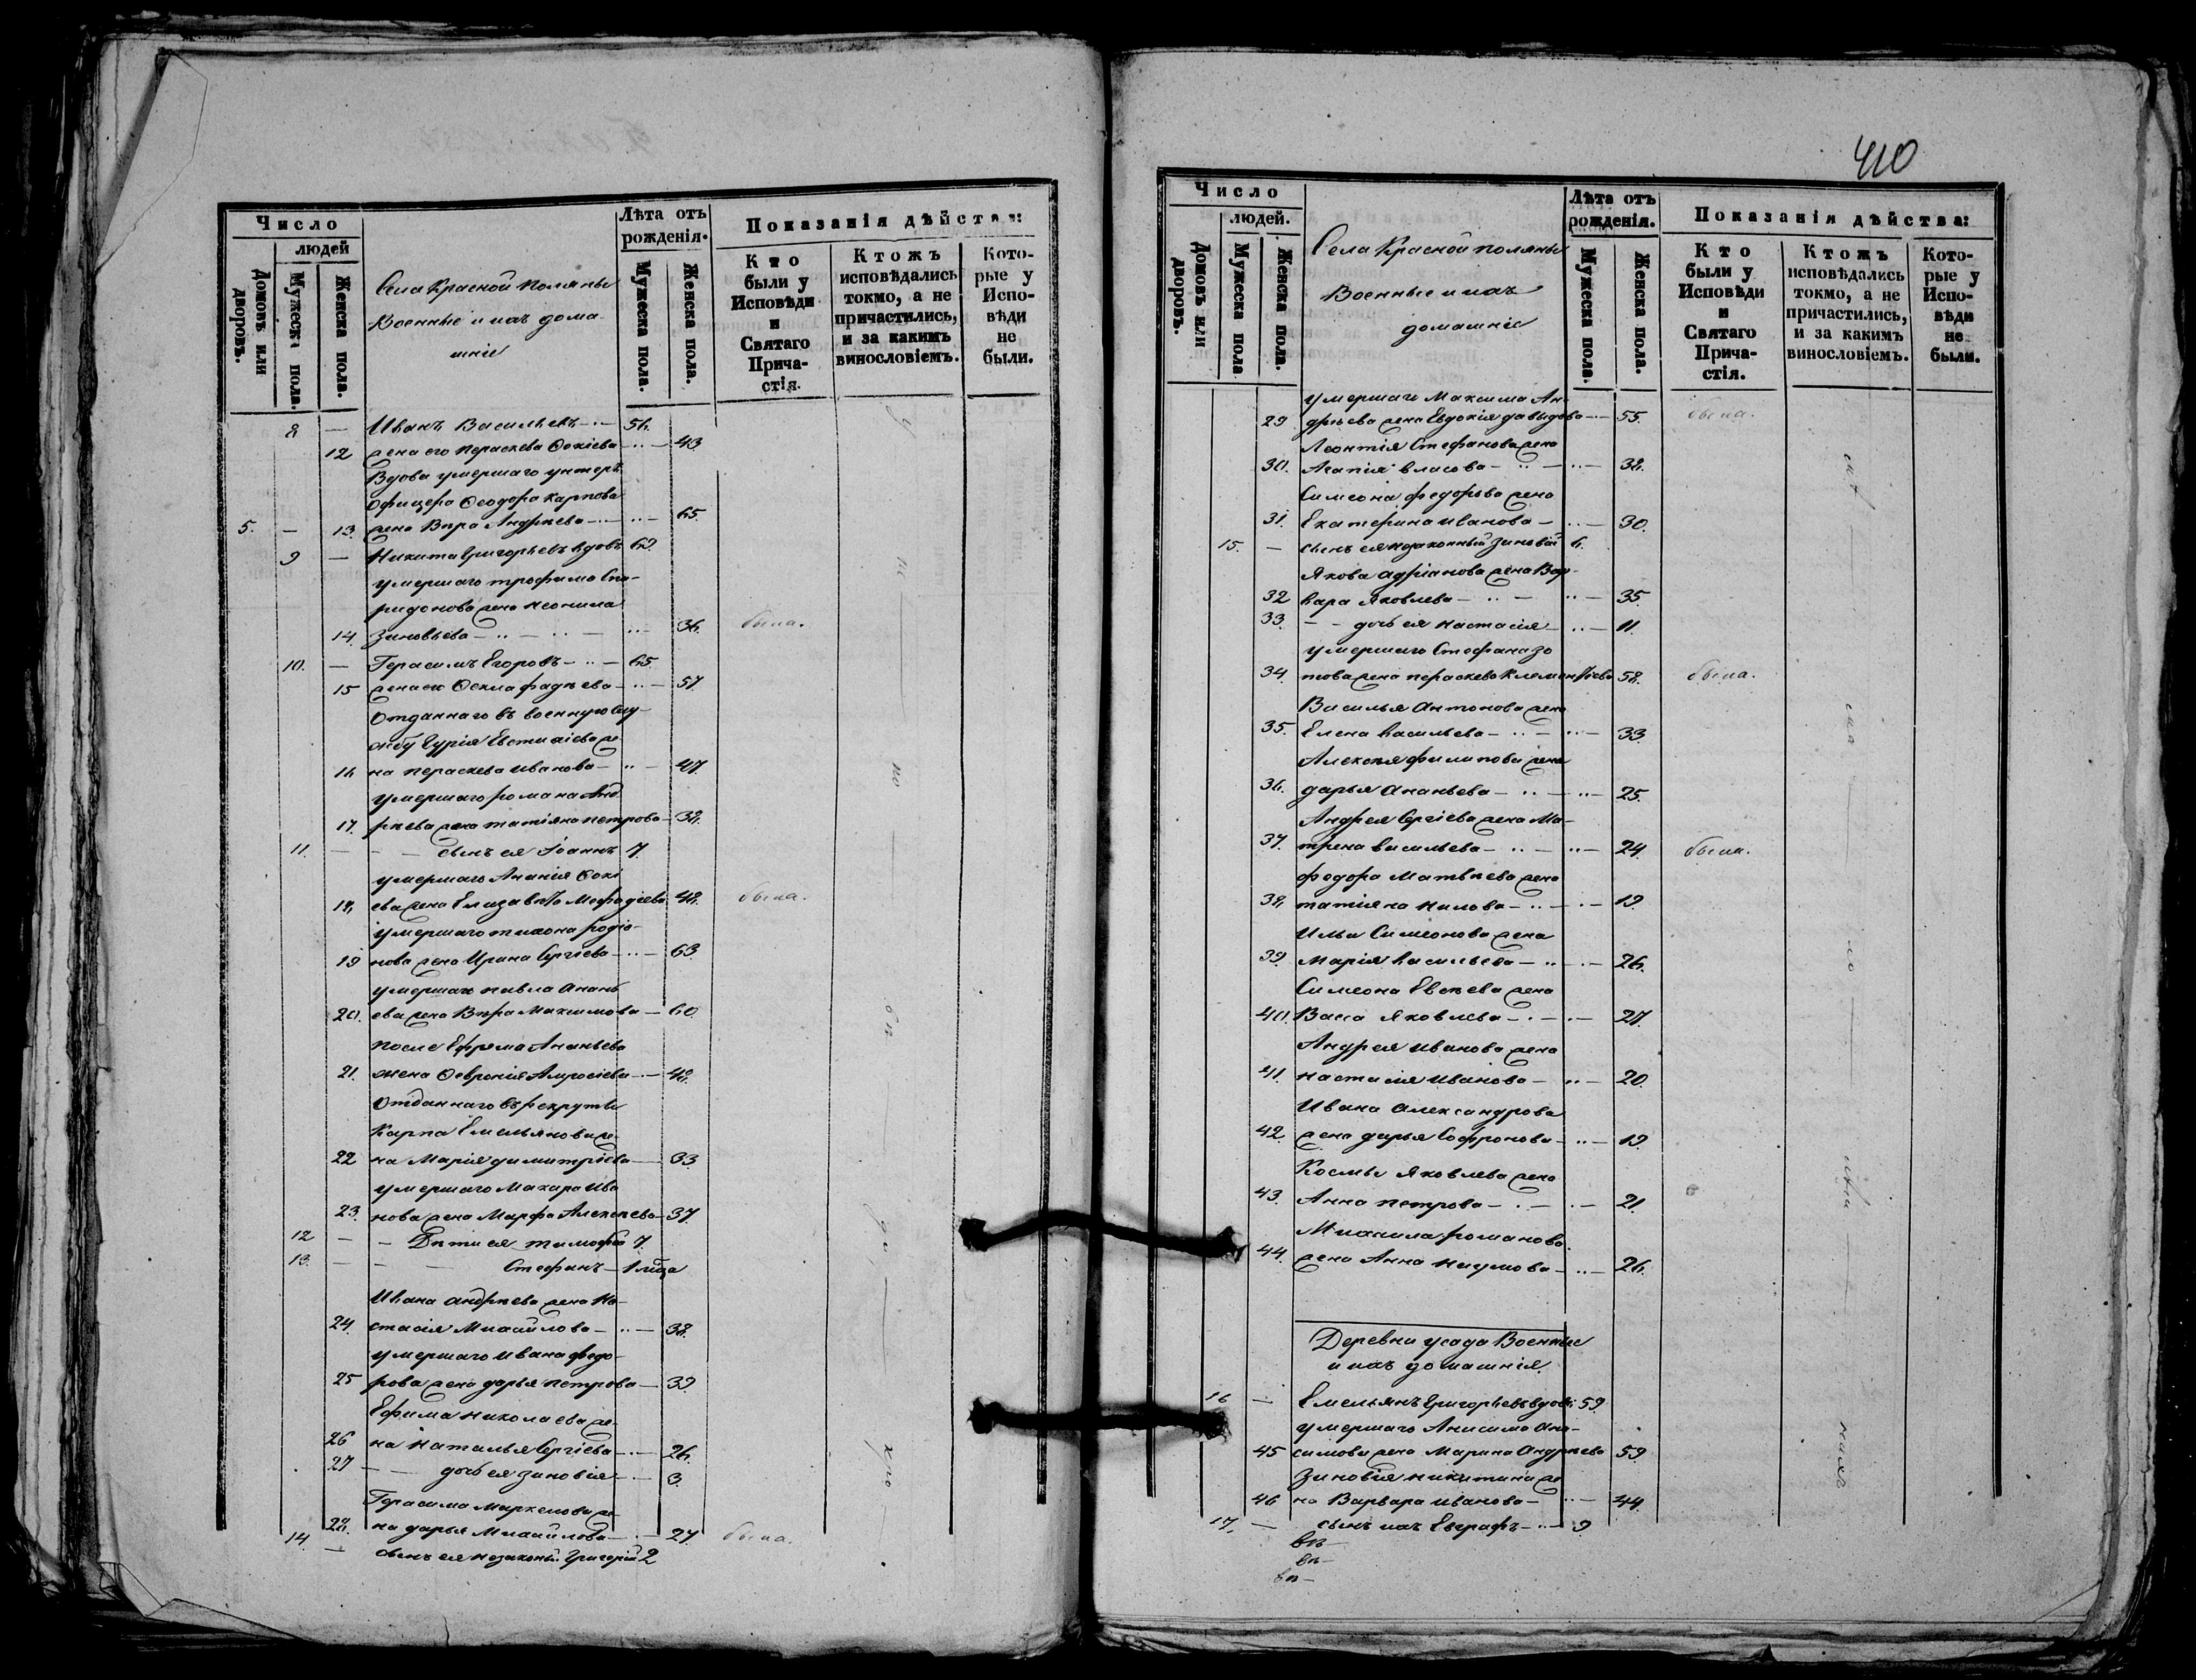 410
Число
людей
Домовъ или дворовъ.
Мужеска пола.
Женска пола.
Села Красной Поляны
Военные и ихъ дома
шніе
Лѣта отъ рожденія.
Мужеска пола.
Женска пола.
Показанія дѣйства:
Кто были у Исповѣди и Святаго Прича-стія.
Ктожъ исповѣдались токмо, а не причастились, и за какимъ винословіемъ.
Кото-рые у Испо-вѣди не были.
8 — Иванъ Васильевъ — 56.
12 жена его Параскева Фокіева — 43.
Вдова умершаго унтеръ
Офицера Ѳеодора Карпова
5. — 13. жена Вѣра Андрѣева — 65.
9 — Никита Григорьевъ вдовъ 62.
умершаго трофима Спи-
ридонова жена Неонила
14 Зиновьева — 36. была.
10. — Герасимъ Егоровъ — 65.
15 жена его Ѳекла фадѣева — 57.
Отданнаго въ военную слу-
жбу Гурія Евстихіева же-
16 на Параскева Иванова — 47.
умершаго романа Анд
17. рѣева жена татіяна петрова — 38.
11. — — сынъ ея Іоаннъ 7.
умершаго Ананія Фокі
18. ева жена Елизавѣта Мефодіева 48. была.
умершаго тихона родіо-
19 нова жена Ирина Сергіева — 63
умершаго павла Анань
20. ева жена Вѣра Максимова — 60.
после Ефрема Ананьева
21. жена Ѳевронія Амросіева — 48.
Отданнаго въ рекруты
Карпа Емельянова же-
22 на Марія димитріева — 33
умершаго Макара Ива
23. нова жена Марфа Алексѣева — 37.
12 — — Дѣти ея тимофей 7.
13. — — Стефанъ — 1 мѣца
Ивана андрѣева жена На-
24. стасія Михайлова — 38.
умершаго Ивана федо-
25 рова жена дарья петрова — 39.
Ефима николаева же-
26 на наталья Сергіева — 26.
27 — — дочь ея зиновія — 3.
Герасима Маркелова же-
28. на дарья Михайлова — 27. была.
14. — сынъ ея незаконный Григорій 2
Число
людей.
Домовъ или дворовъ.
Мужеска пола
Женска пола.
Села Красной поляны
Военные и ихъ
домашніе
Лѣта отъ рожденія.
Мужеска пола.
Женска пола.
Показанія дѣйства:
Кто были у Исповѣди и Святаго Прича-стія.
Ктожъ исповѣдались токмо, а не причастились, и за какимъ винословіемъ.
Кото-рые у Испо-вѣди не были.
умершаго Максима Ан-
29 дрѣева жена Евдокія давыдова — 55. была.
Леонтія Стефанова жена
30. Агапія власова — 38.
Симеона федорова жена
31. Екатерина иванова — 30.
15. — сынъ ея незаконный Зиновій 6.
Якова адріанова жена Вар-
32 вара Яковлева — 35.
33. — — дочь ея настасія — 11.
умершаго Стефана зо
34. това жена параскева Клементіева 58. была.
Василья Антонова жена
35. Елена васильева — 33.
Алексѣя филипова жена
36. дарья Ананьева — 25.
Андрея Сергіева жена Ма-
37. трена васильева — 24. была.
федора Матвѣева жена
38. татіяна нилова — 19.
Ильи Симеонова жена
39. марія васильева — 26.
Симеона Евсѣева жена
40. Васса Яковлева — 27.
Андрея иванова жена
41. настасія иванова — 20.
Ивана александрова
42. жена дарья Софронова — 19.
Космы Яковлева жена
43. Анна петрова — 21.
Михаила романова
44. жена Анна наумова — 26.
Деревни усада Военные
и ихъ домашнія.
16 — Емельянъ Григорьевъ вдовъ 59.
умершаго Анисима Ани-
45 симова жена Марина Андрѣева 59.
Зиновія никитина же
46 на Варвара иванова — 44.
17. — сынъ ихъ Евграфъ — 9